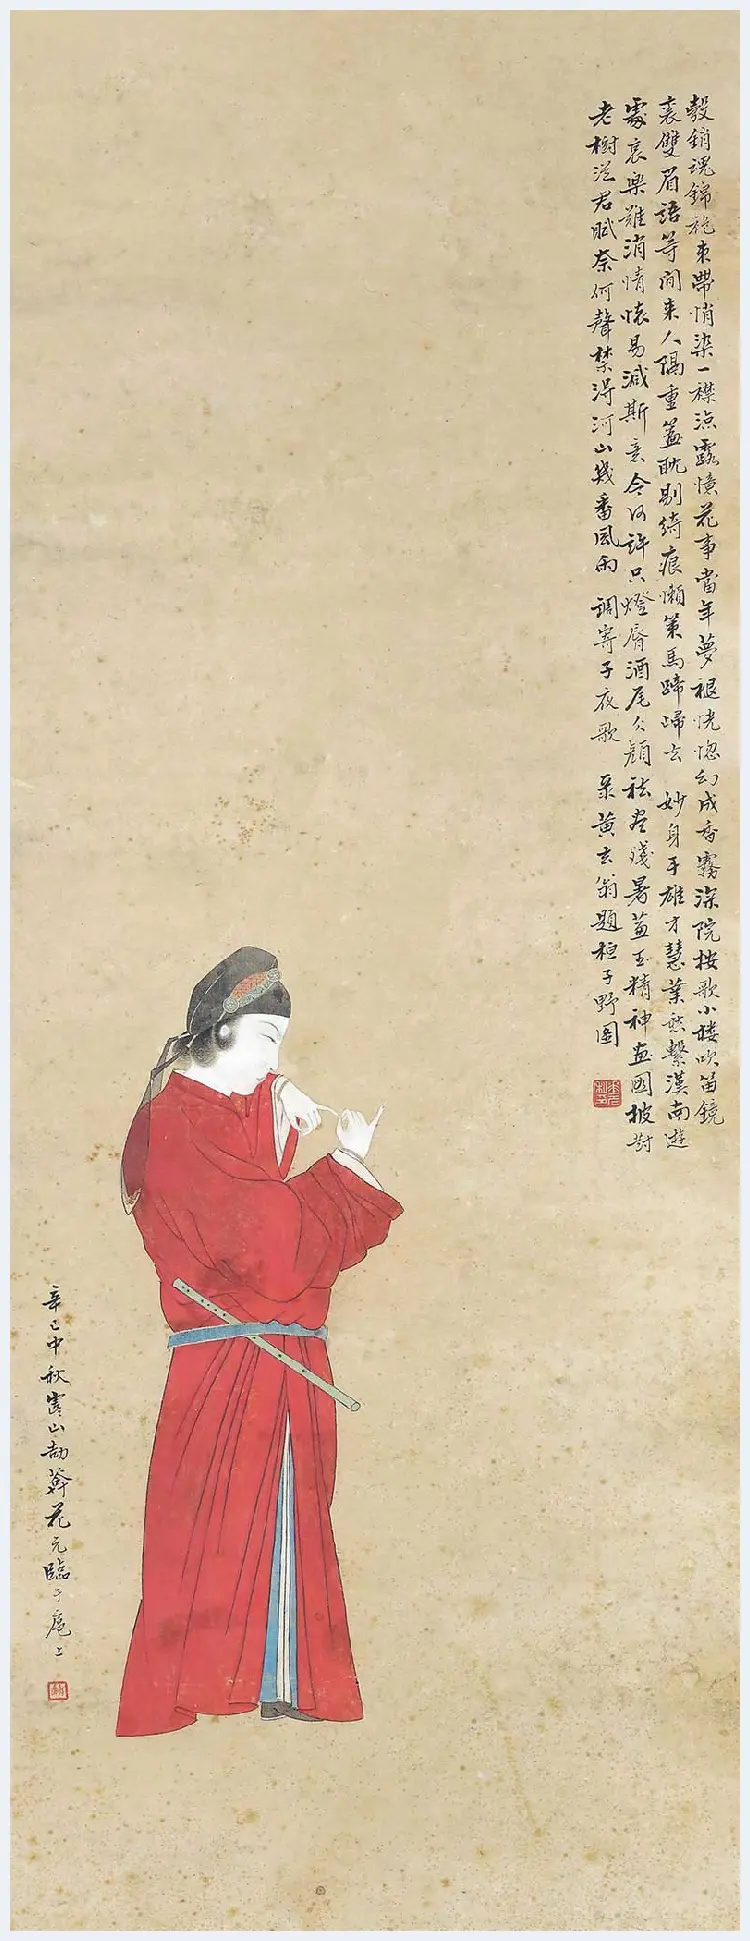 縠銷魂錦袍束帶悄染一襟涼露憶花事當年夢褪恍惚幻成香霧深院按歌小樓吹笛鏡
裏雙眉語等閒來人隔重簾耽剔綺痕懶策馬蹄歸去 妙身手雄才慧業愁繫漢南遊
處哀樂難消情懷易減斯意今何許只燈唇酒尾 顏 殘暑蓋玉精神畫圖披對
老樹從君賦奈何聲禁得河山幾番風雨 調寄子夜歌 采黃玄翁題桓子野圖
辛巳中秋 山 花元臨于 上